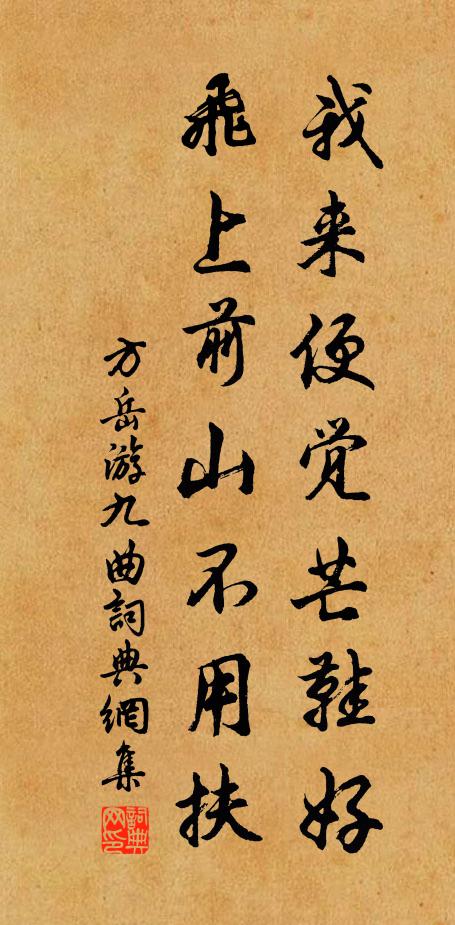 我来便觉芒鞋好
飛上前山不用扶
方岳游九曲詞典網集
詞典网印